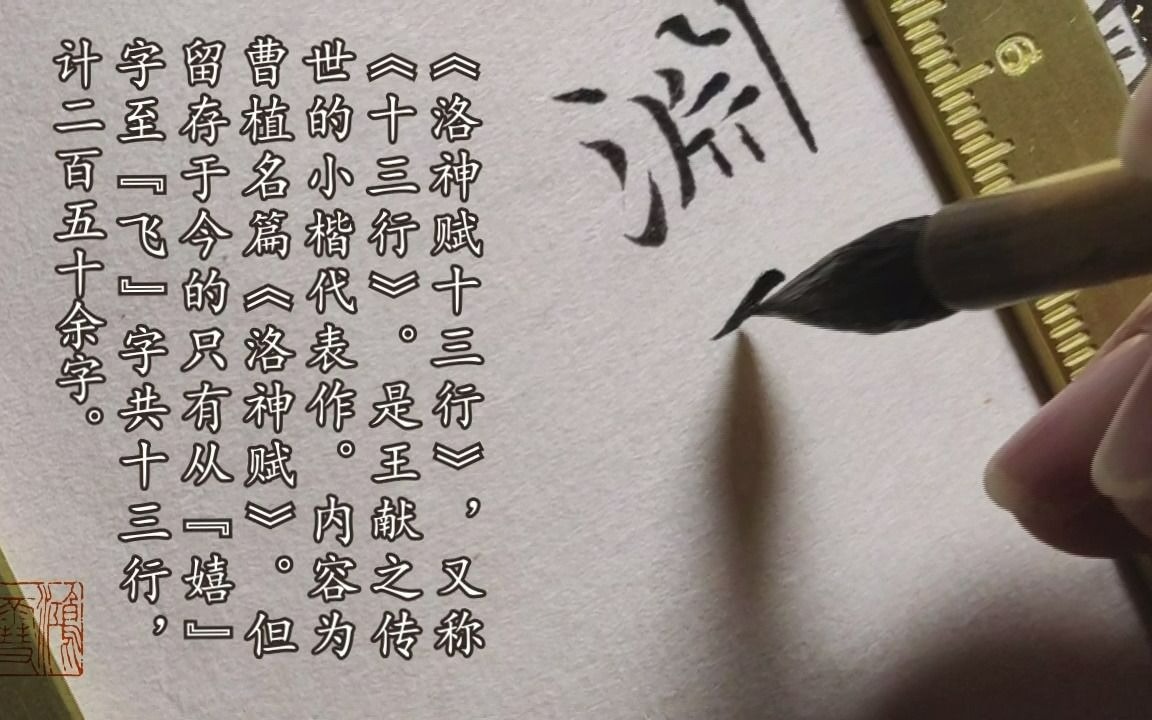 《洛神赋十三行》，又称
《十三行》。是王献之传
世的小楷代表作。内容为
曹植名篇《洛神赋》。但
留存于今的只有从『嬉』
字至『飞』字共十三行，
计二百五十余字。